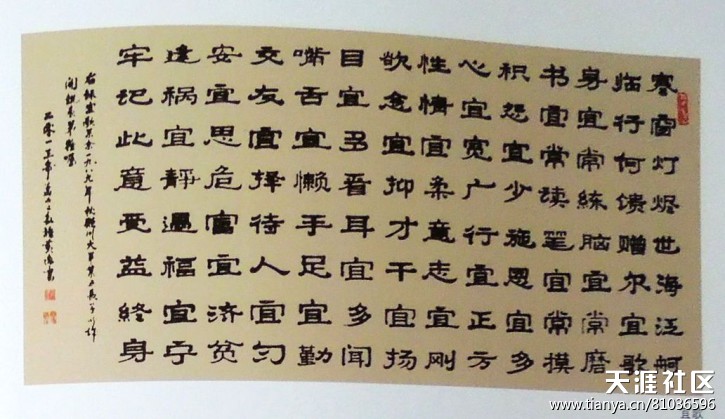 寒窗灯烬世海泛舸
临行何馈赠尔宜歌
身宜常练脑宜常磨
书宜常读笔宜常摸
积怨宜少施恩宜多
心宜宽广行宜正方
性情宜柔意志宜刚
欲念宜抑才干宜扬
目宜多看耳宜多闻
嘴舌宜懒手足宜勤
交友宜择待人宜匀
安宜思危富宜济贫
逢祸宜靜遇福宜宁
牢记此意受益終身
右録宜歌 一九八九年秋
二零一五年
天涯社区
www.tianya.cn/81036596